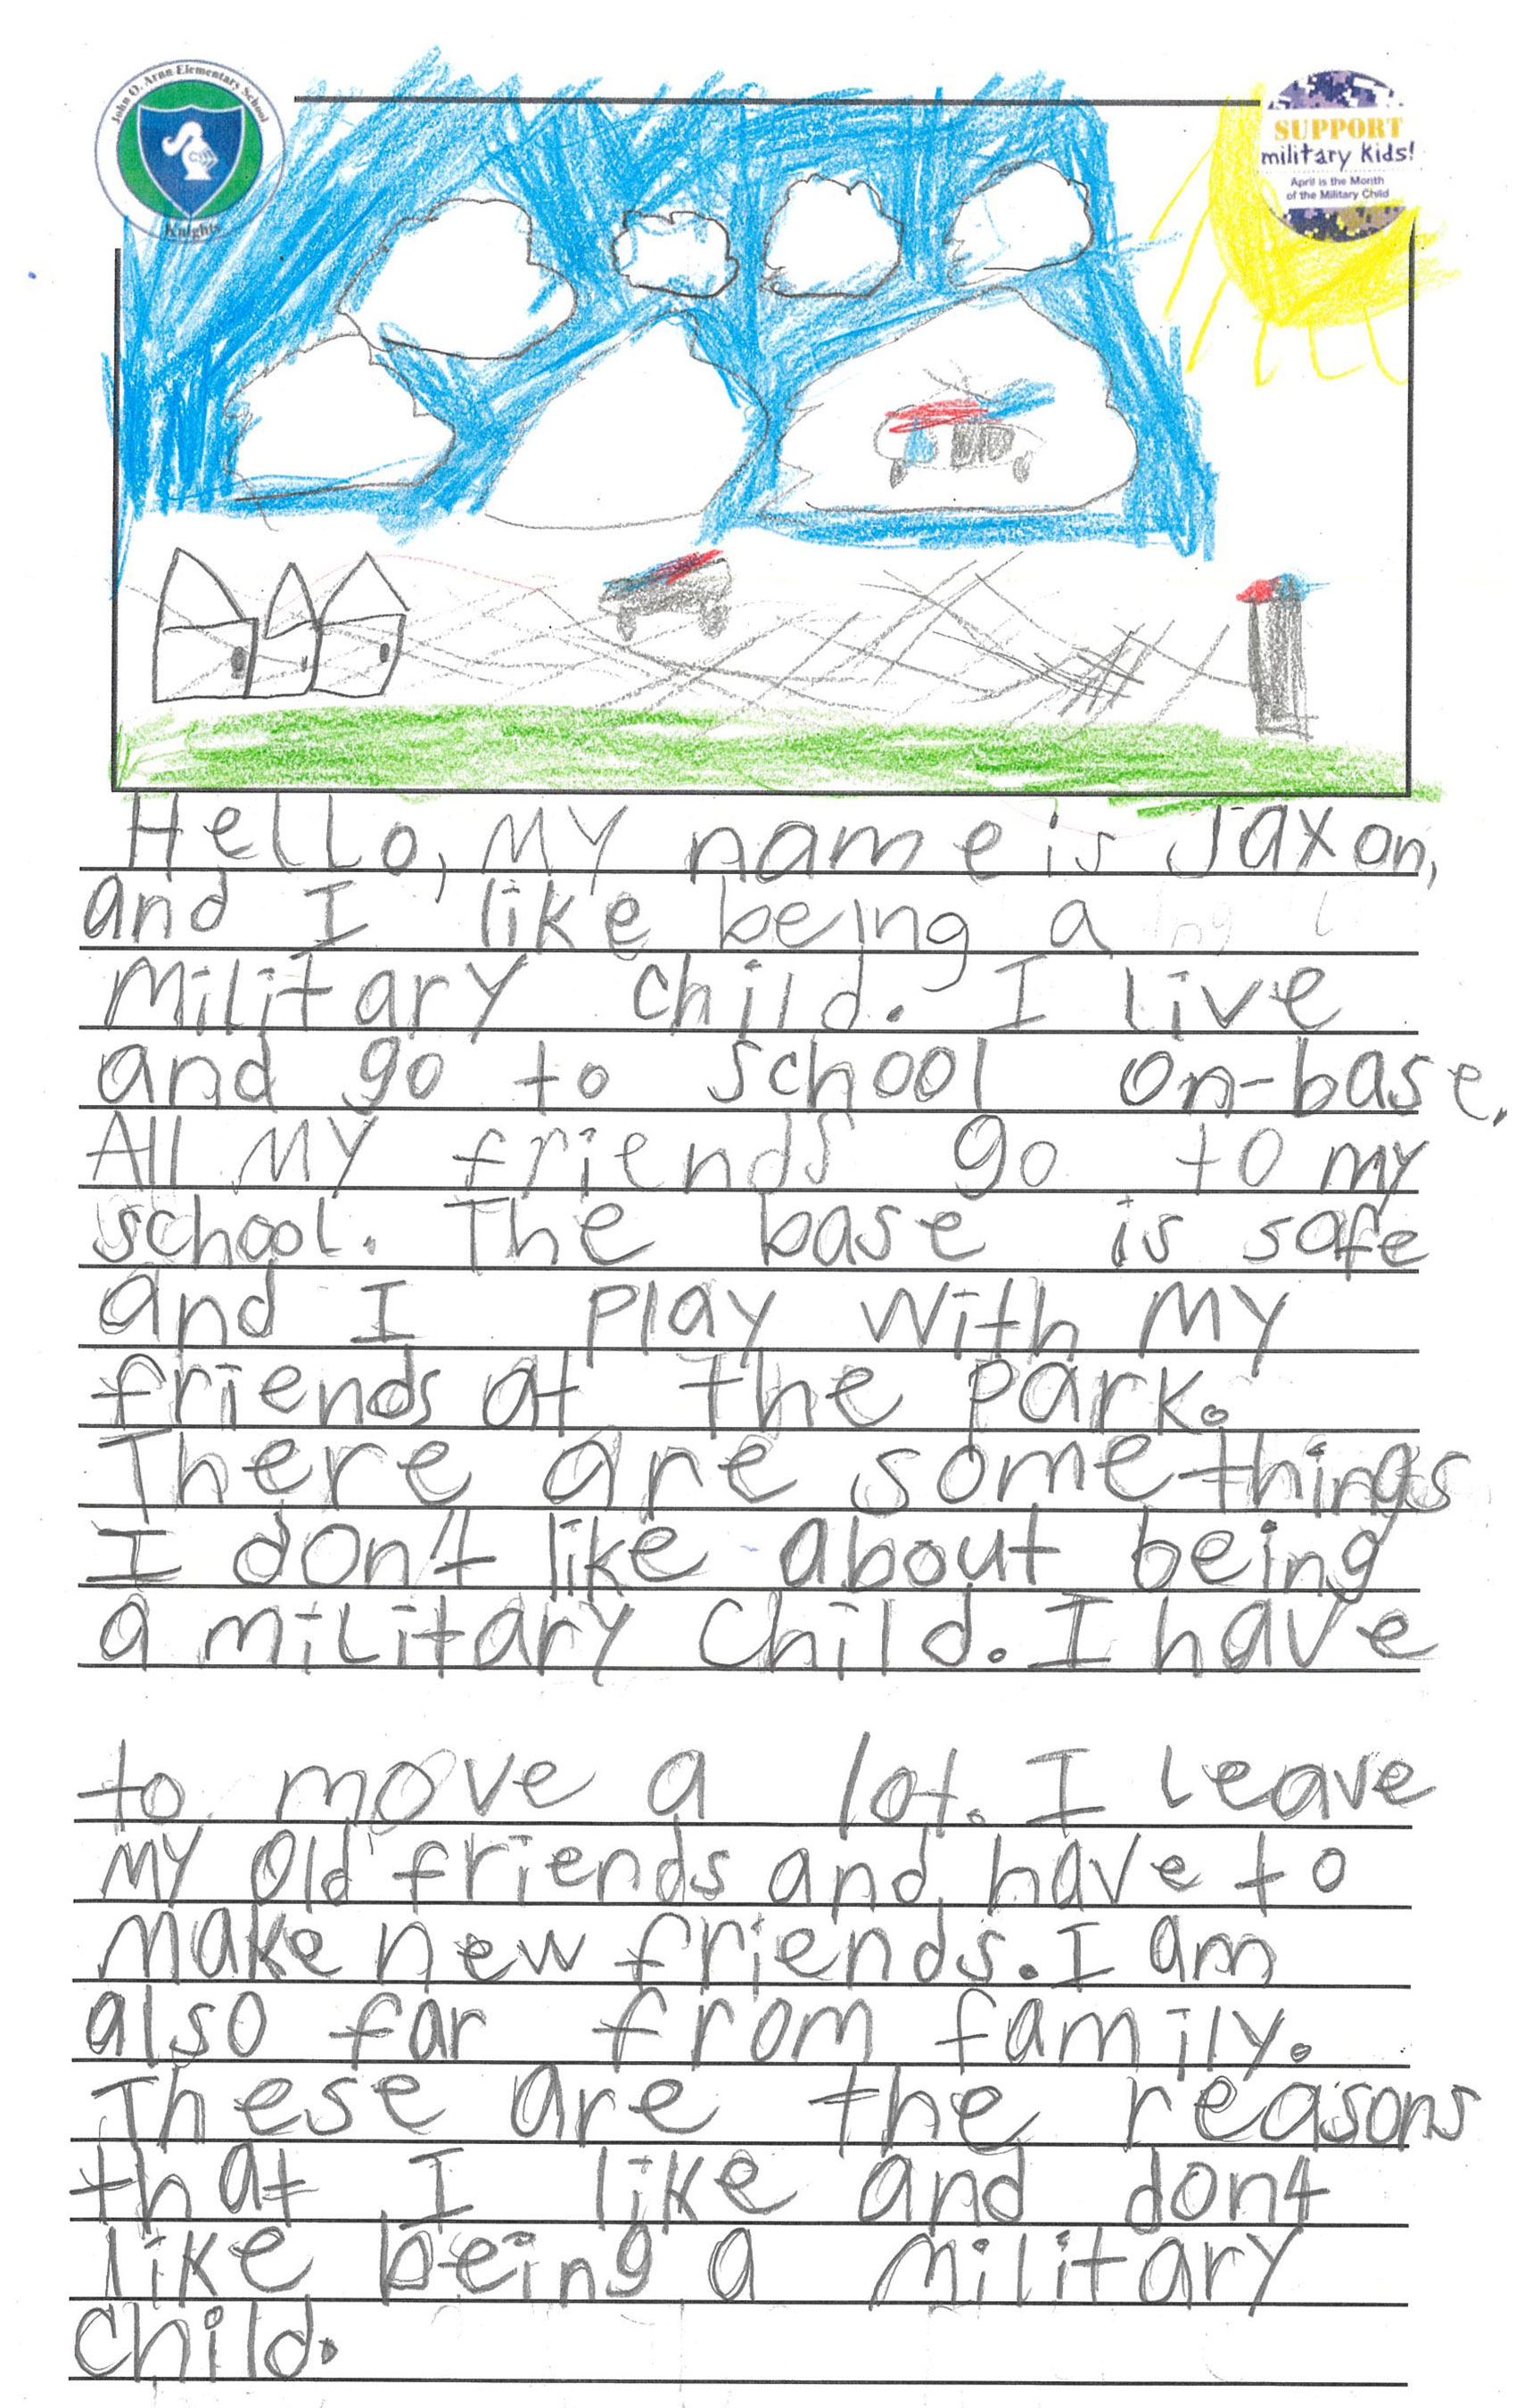 John O. Arnn Elementary School
Knights
SUPPORT
military kids!
April is the Month
of the Military Child
Hello, my name is Jaxon,
and I like being a
military child. I live
and go to school on-base.
All my friends go to my
school. The base is safe
and I play with my
friends at the park.
There are some things
I don't like about being
a military child. I have
to move a lot. I leave
my old friends and have to
make new friends. I am
also far from family.
These are the reasons
that I like and dont
like being a military
child.